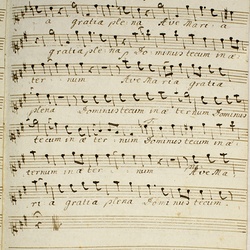 a gratia plena Ave Mari a
gratia ple: na Dominus tecum in æ:
ter num Ave Maria gratia
plena Dominus tecum in æ ternum Dominus
tecum in æ: ter: num Dominus tecum in æ:
ternum in æ ter: num Ave Ma:
ri a gratia plena Dominus tecum